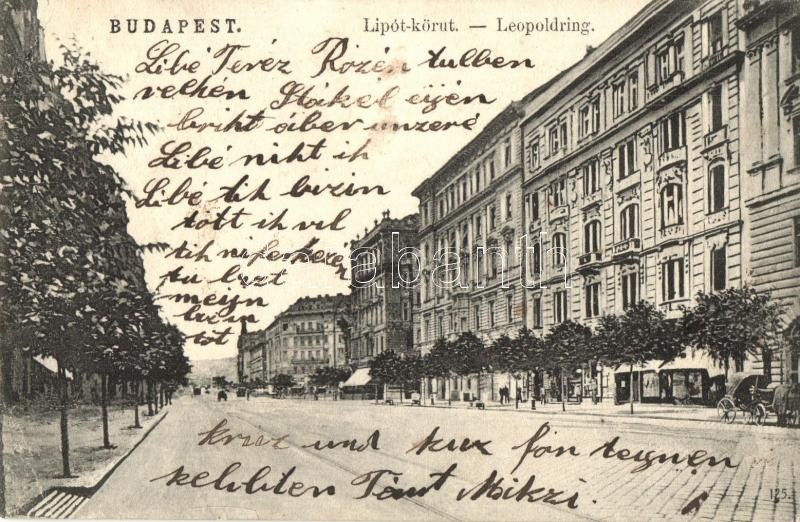 BUDAPEST.
Lipót-körut. — Leopoldring.
Libé Teréz Rózén tulben
velhén Stókel eijén
brikt óiber unzeré
Libé niht ih
Libé tih bizin
tótt ih vil
tih niferkezén
tu bizt
meyn
bizin
tót
kruz und kuz fon teynen
kelibten Tont Mikzi.
125.
abanth